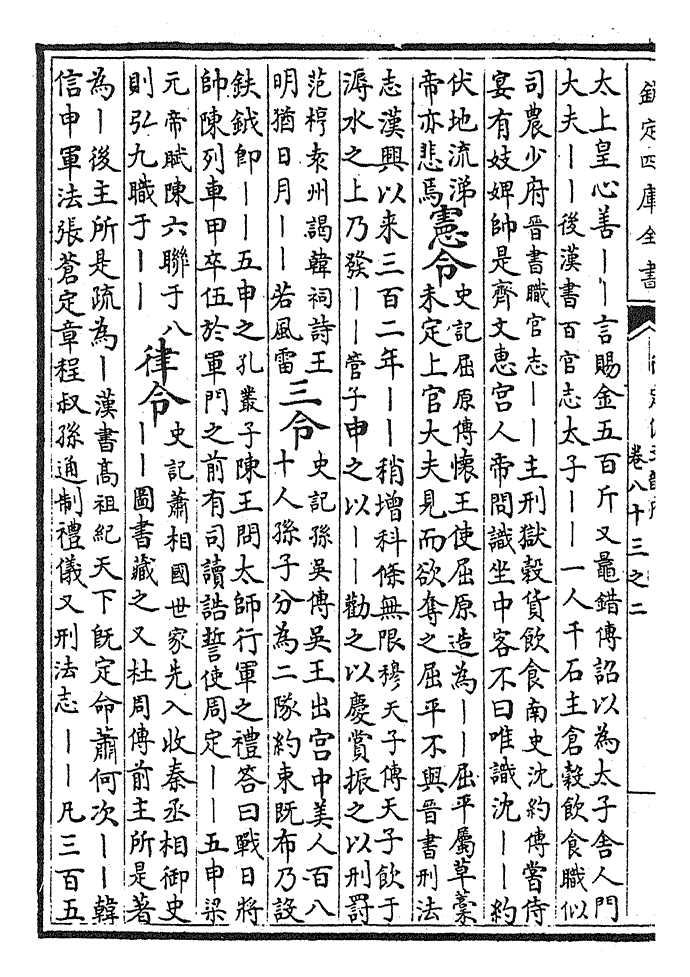 欽定四庫全書
卷八十三之二
太上皇心善丨丨言賜金五百斤又鼂錯傳詔以為太子舍人門
大夫丨丨後漢書百官志太子丨丨一人千石主倉榖飲食職似
司農少府晉書職官志丨丨主刑獄榖貨飲食南史沈約傳嘗侍
宴有妓婢帥是齊文惠宫人帝問識坐中客不曰唯識沈丨丨約
伏地流涕
帝亦悲焉
憲令
史記屈原傳懷王使屈原造為丨丨屈平屬草藁
未定上官大夫見而欲奪之屈平不與晉書刑法
志漢興以来三百二年丨丨稍增科條無限穆天子傳天子飲于
溽水之上乃發丨丨管子申之以丨丨勸之以慶賞振之以刑罰
范梈袁州謁韓祠詩王
明猶日月丨丨若風雷
三令
史記孫吳傳吳王出宫中美人百八
十人孫子分為二隊約束既布乃設
鈇鉞即丨丨五申之孔叢子陳王問太師行軍之禮答曰戰日將
帥陳列車甲卒伍於軍門之前有司讀誥誓使周定丨丨五申梁
元帝賦陳六聯于八
則弘九職于丨丨
律令
史記蕭相國世家先入收秦丞相御史
丨丨圖書藏之又杜周傳前主所是著
為丨後主所是疏為丨漢書髙祖紀天下既定命蕭何次丨丨韓
信申軍法張蒼定章程叔孫通制禮儀又刑法志丨丨凡三百五